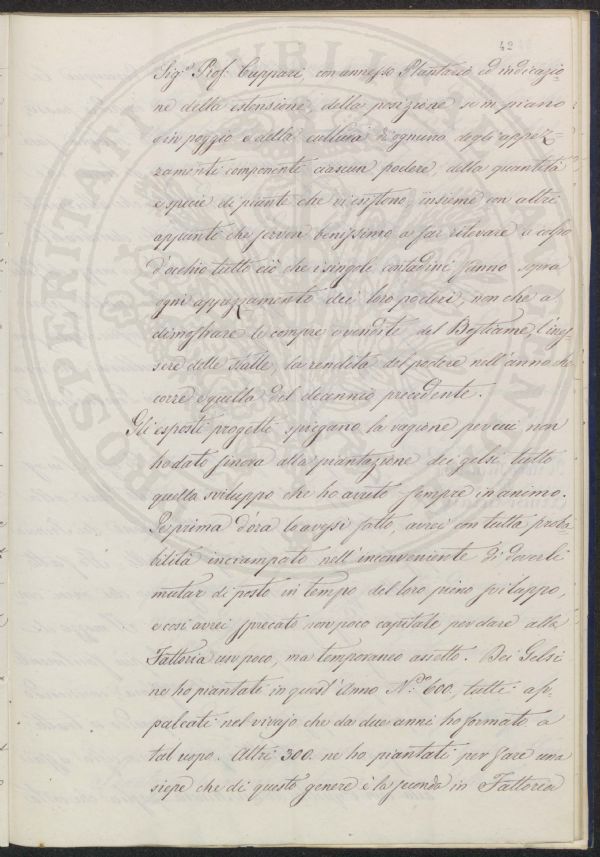 42
Sig.r Prof. Cuppari, con annesso Plantario ed indicazio-
ne della estensione, della posizione se in piano
o in poggio e della cultura d'ognuno degli appez-
zamenti componenti ciascun podere, della quantità
e specie di piante che vi esistono, insieme con altri
appunti che servon benissimo a far rilevare a colpo
d'occhio tutto ciò che i singoli contadini fanno sopra
ogni appezzamento dei loro poderi, non che a
dimostrare le compre e vendite del Bestiame, l'ing-
sere delle stalle, la rendita del podere nell'anno che
corre e quella del decennio precedente.
Gli esposti progetti spiegano la ragione per cui non
ho dato finora alla piantazione dei gelsi tutto
quello sviluppo che ho avuto sempre in animo.
Se prima d'ora lo avessi fatto, avrei con tutta proba-
bilità inciampato nell'inconveniente di doverli
mutar di posto in tempo del loro pieno sviluppo,
e così avrei sprecato non poco capitale per dare alla
Fattoria un poco, ma temporaneo assetto. Dei Gelsi
ne ho piantati in quest'Anno N.o 600, tutti as-
palcati nel vivajo che da due anni ho formato a
tal uopo. Altri 300 ne ho piantati per fare una
siepe che di questo genere è la seconda in Fattoria
PROSPERITATI PUBLICAE AUGENDAE